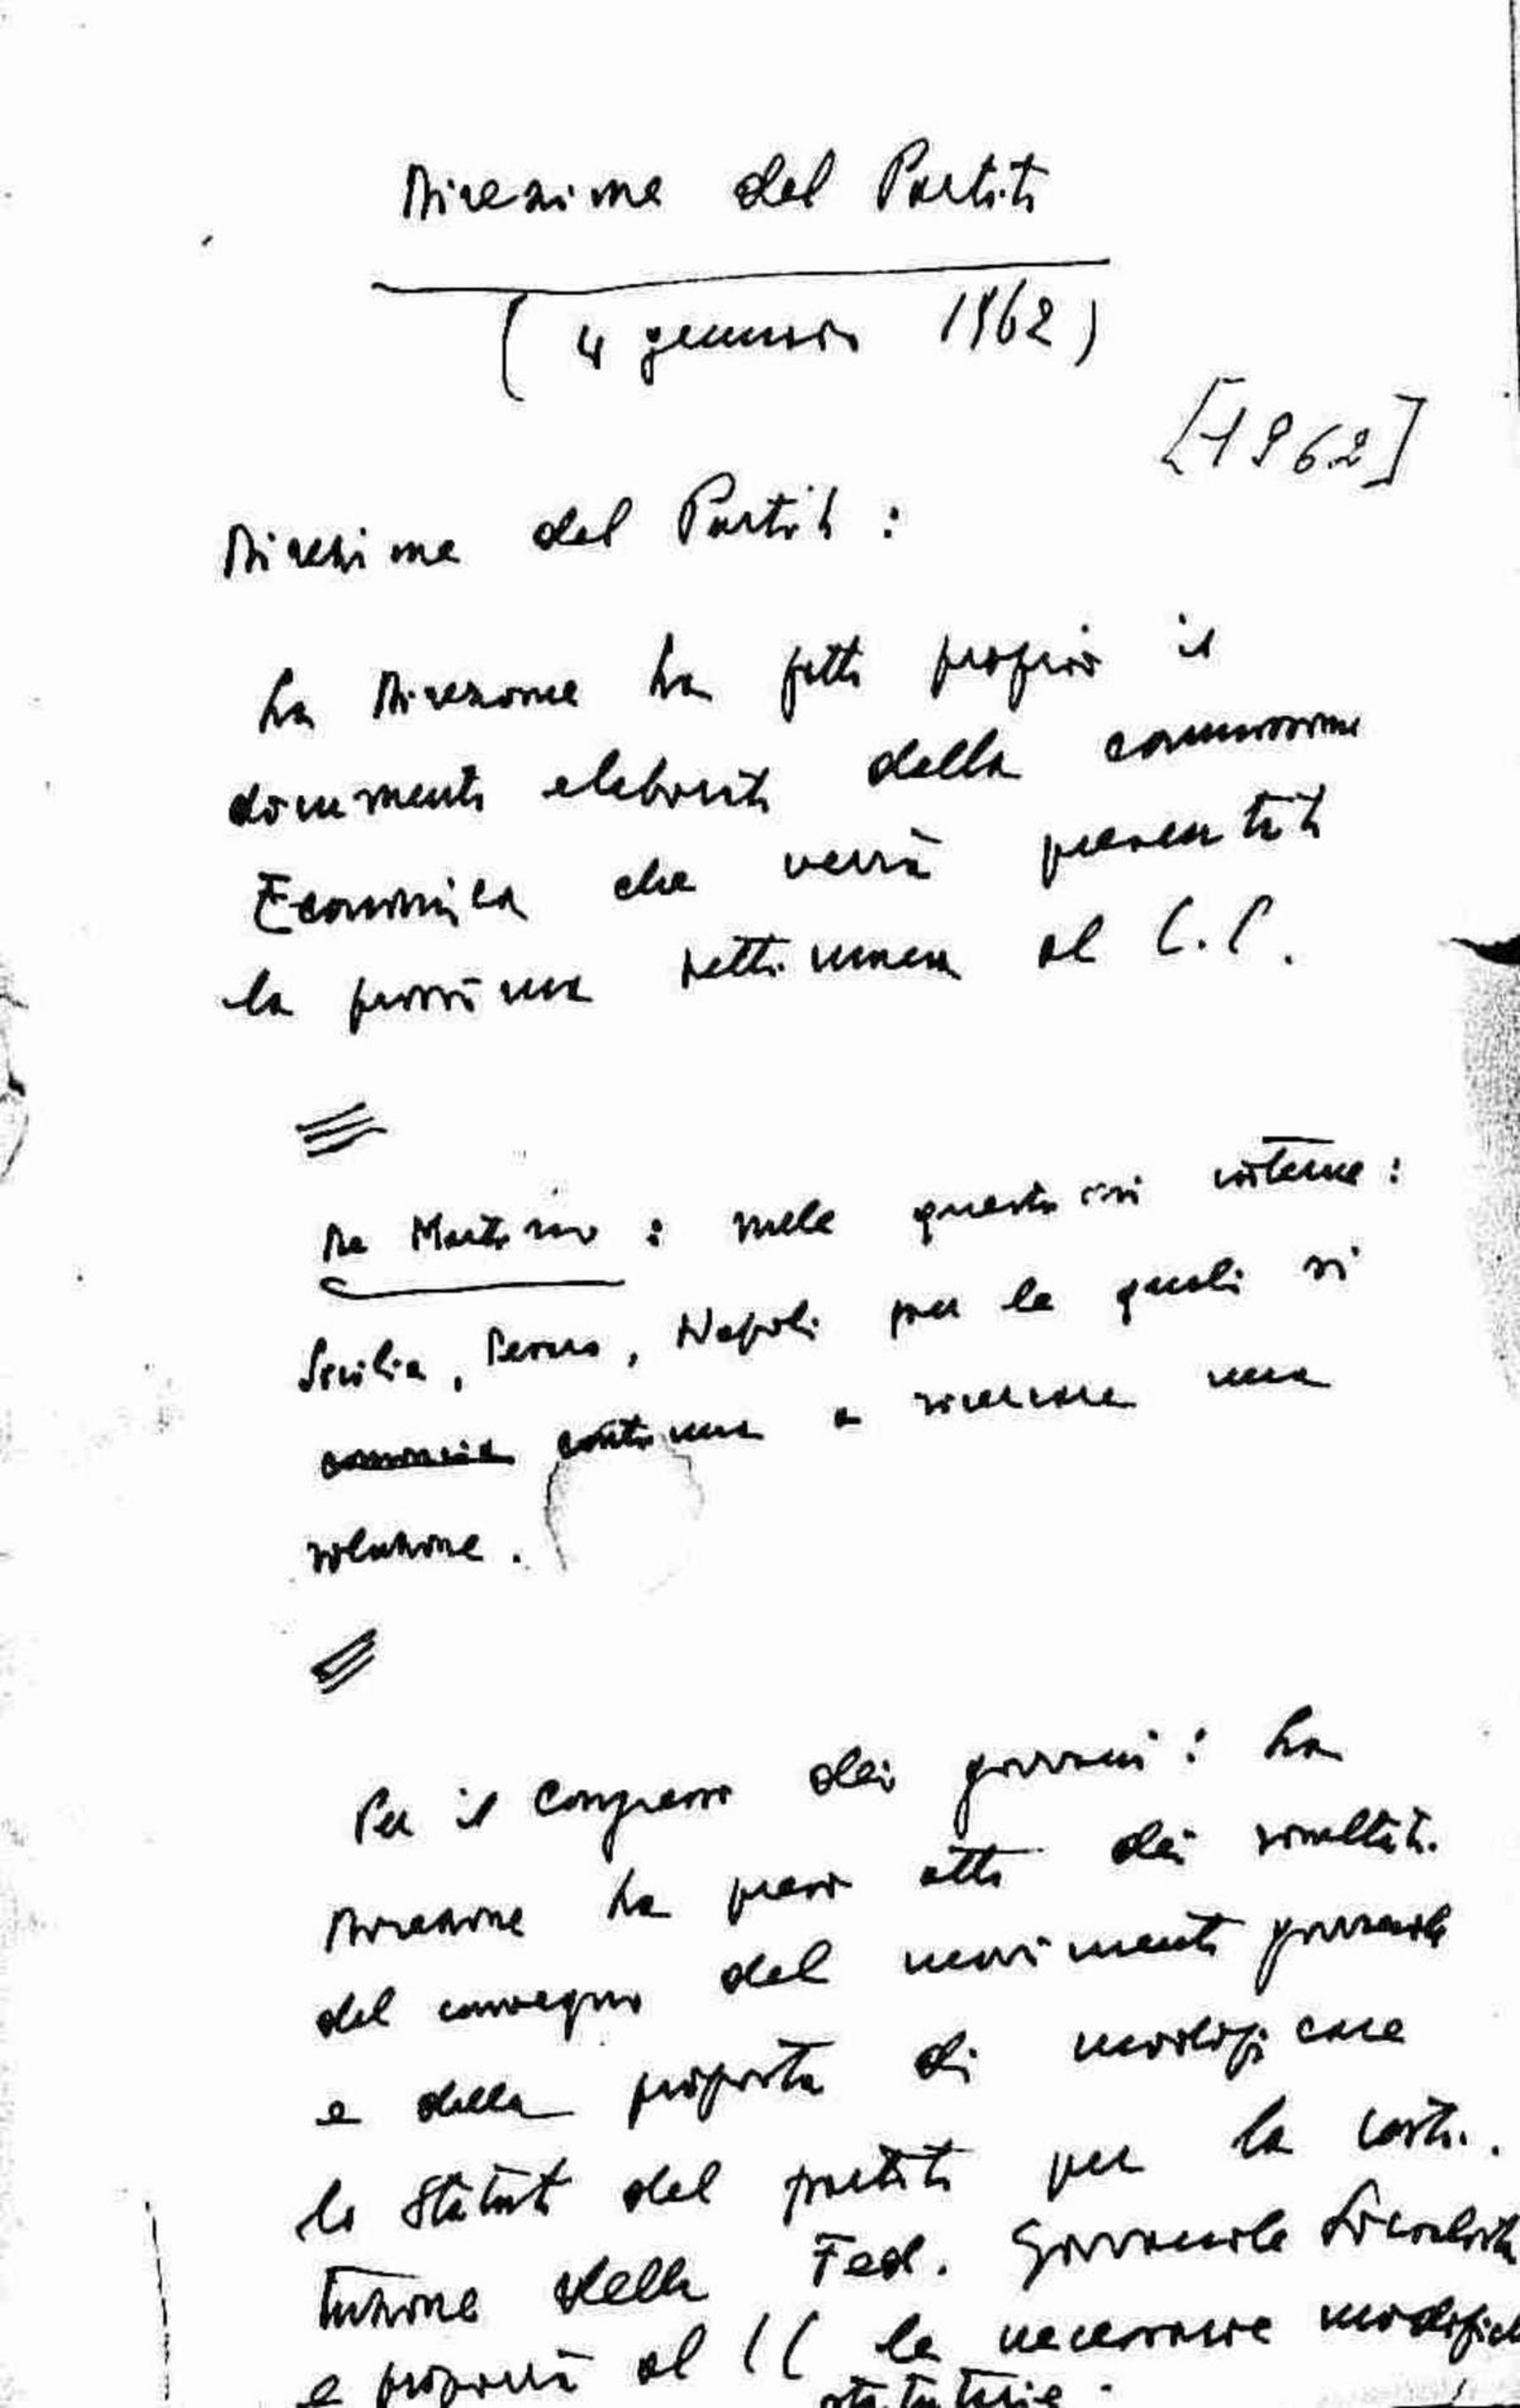 Direzione del Partito
( 4 gennaio 1962 )
[1962]
Direzione del Partito :
La Direzione ha fatto proprio il
documento elaborato dalla commissione
Economica che verrà presentato
la prossima settimana al C.C.
De Martino : nelle questioni interne :
Sicilia, , Napoli per le quali si
comincia continua a ricercare una
soluzione .
Per il Congresso dei giovani : La
Direzione ha preso atto dei risultati
del convegno del movimento giovanile
e della proposta di modificare
lo Statuto del partito per la costi-
tuzione della Fed. Giovanile Socialista
e proporrà al CC le necessarie modifiche
statutarie .